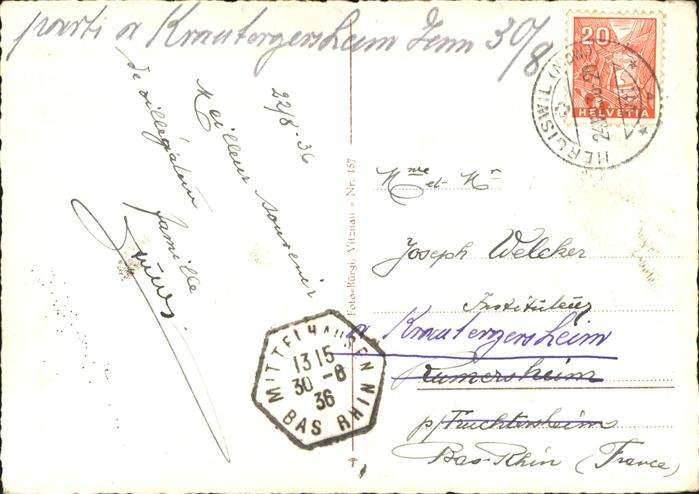 parti a Krautergersheim Jenn 30/8
22/8.36
Meilleur souvenir
de villégiature
famille
Foto-Bürgi, Vitznau - Nr. 457
20
HELVETIA
HERGISWIL
Mme et Mr
Joseph Welcker
Instituteur
a Krautergersheim
Rumersheim
p/Truchtersheim
Bas-Rhin (France)
MITTELHAUSEN
13 15
30 -8
36
BAS RHIN